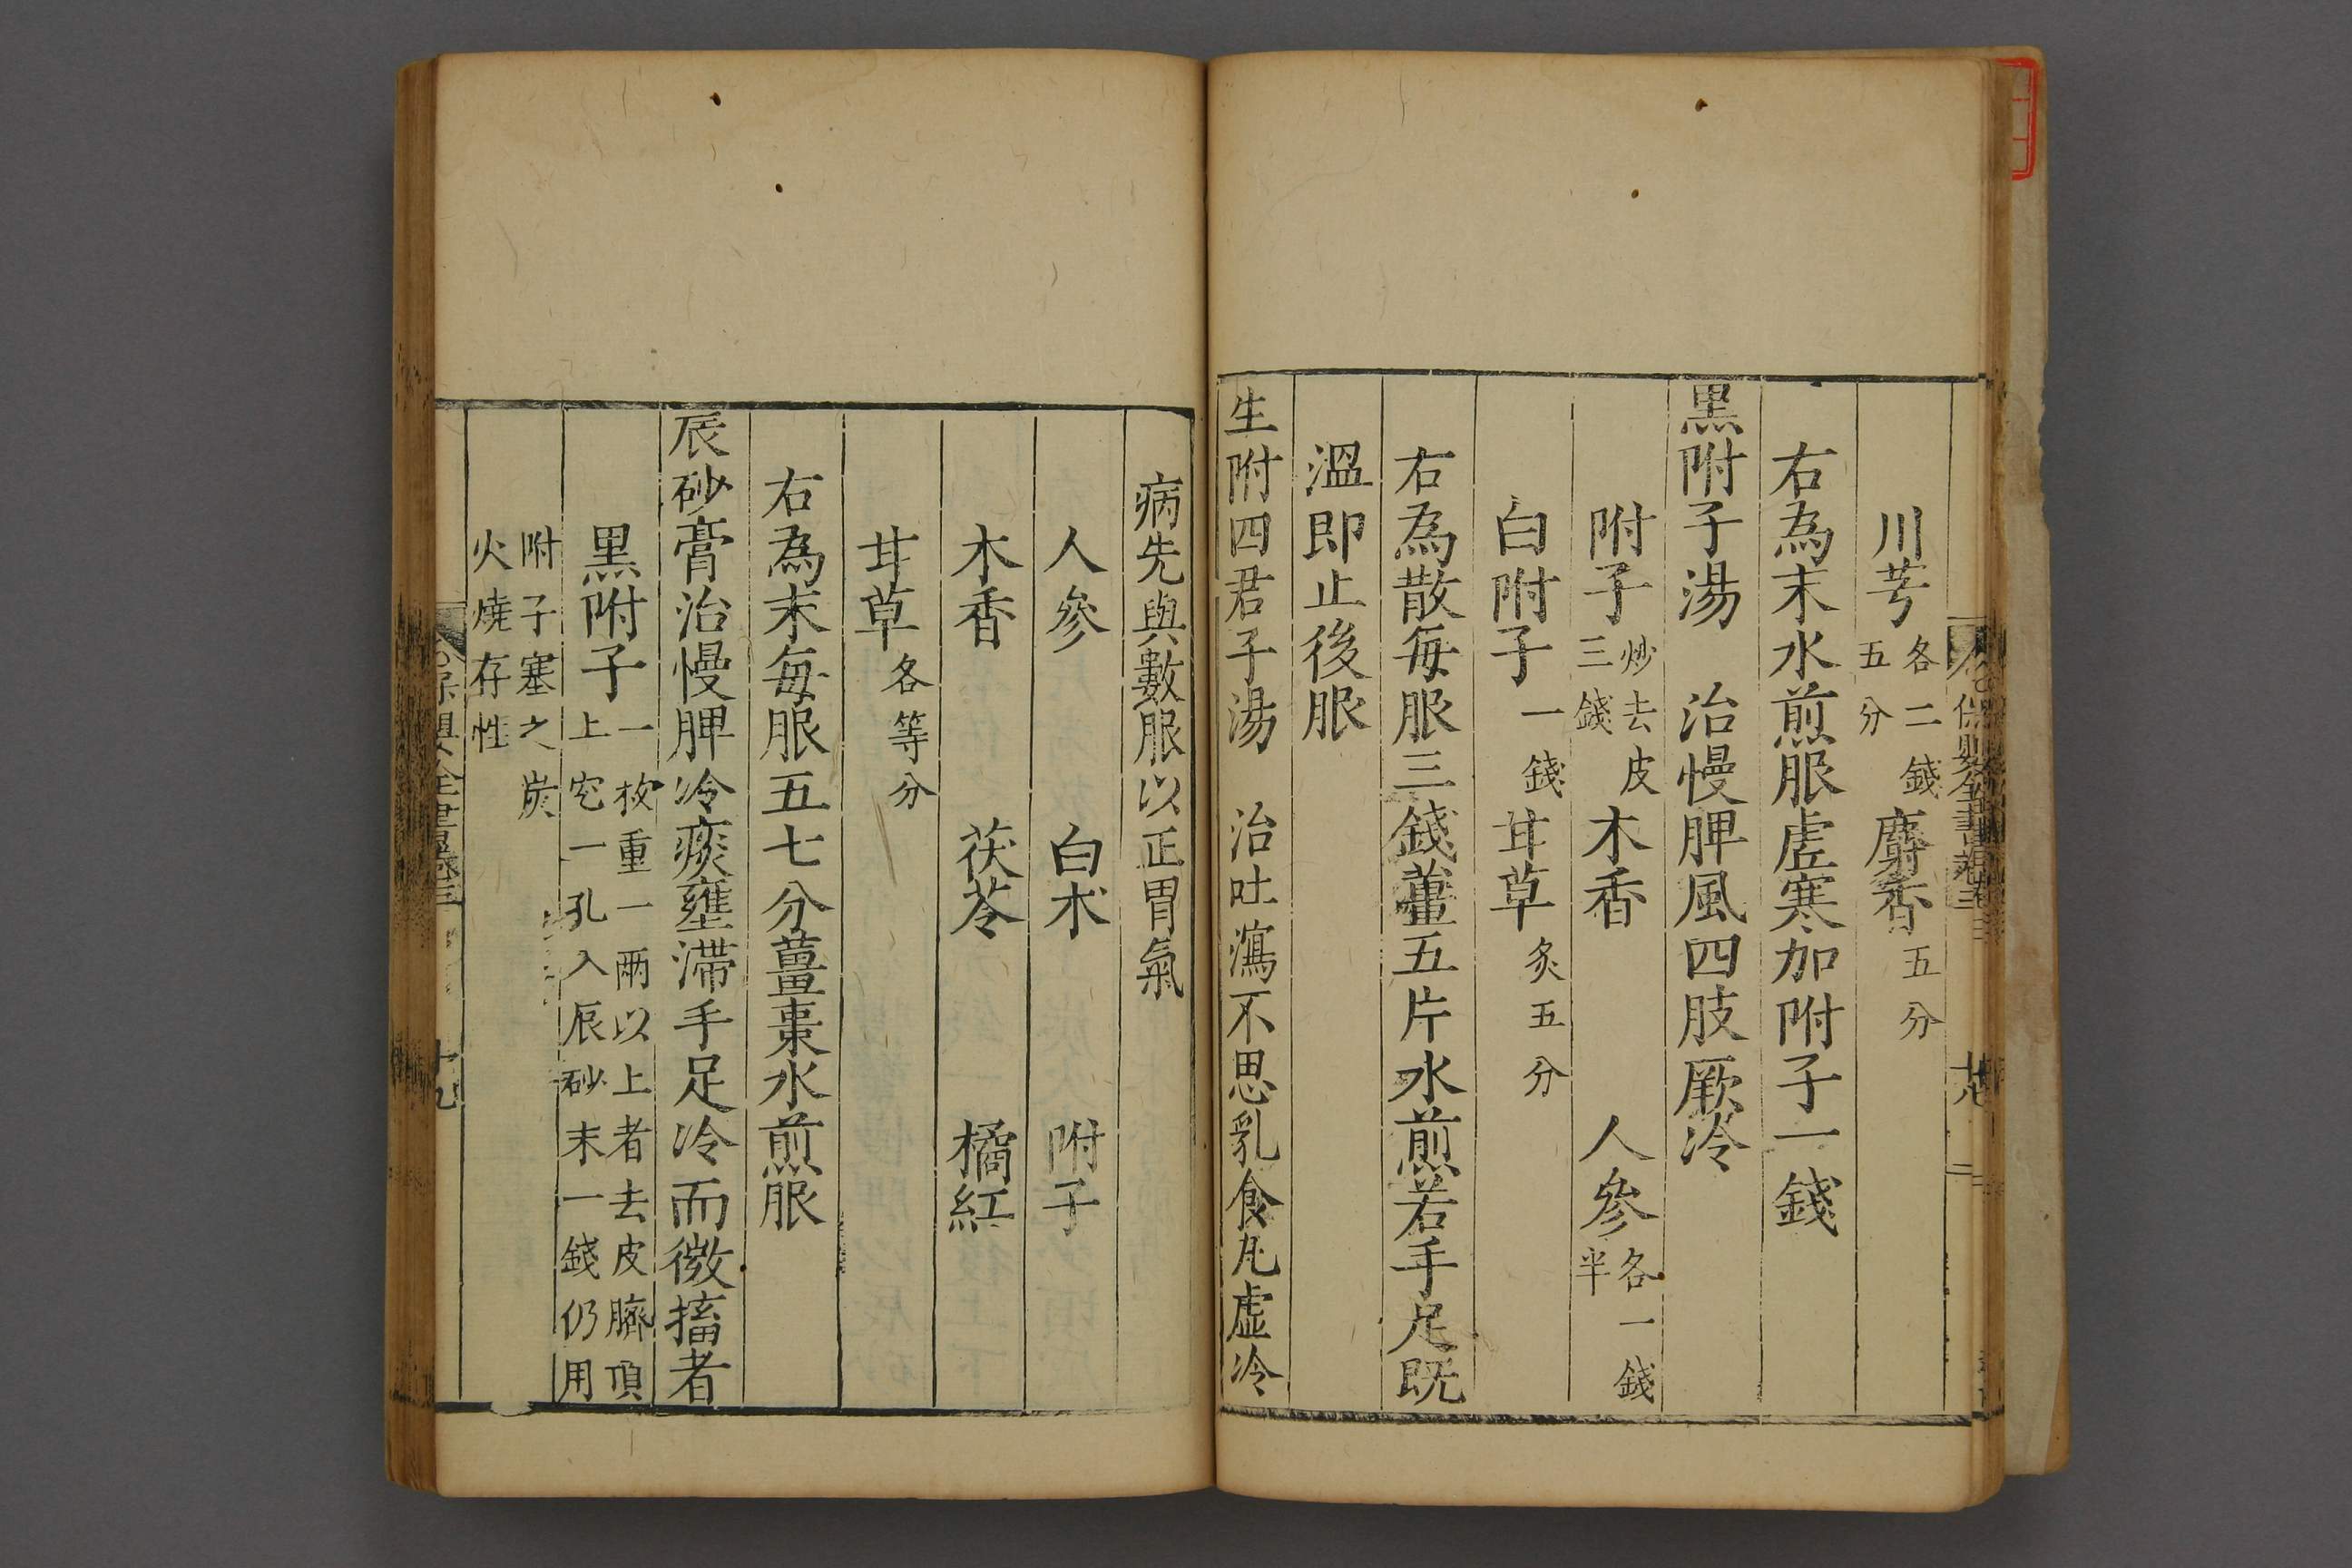 川芎各二錢五分 麝香五分
右為末水煎服虛寒加附子一錢
黑附子湯 治慢脾風四肢厥冷
附子炒去皮三錢 木香 人參各一錢半
白附子一錢 甘草炙五分
右為散每服三錢薑五片水煎若手足既
溫即止後服
生附四君子湯 治吐瀉不思乳食凡虛冷
病先與數服以正胃氣
人參 白朮 附子
木香 茯苓 橘紅
甘草各等分
右為末每服五七分薑棗水煎服
辰砂膏治慢脾冷痰壅滯手足冷而微搐者
黑附子一枚重一兩以上者去皮臍頂上空一孔入辰砂末一錢仍用
附子塞之炭火燒存性